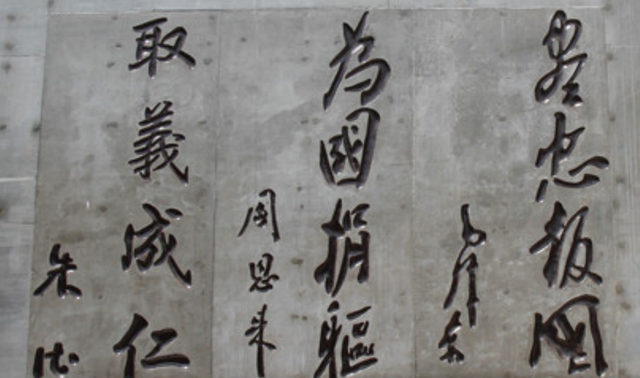 尽忠報國
毛泽东
為國捐軀
周恩来
取義成仁
朱德